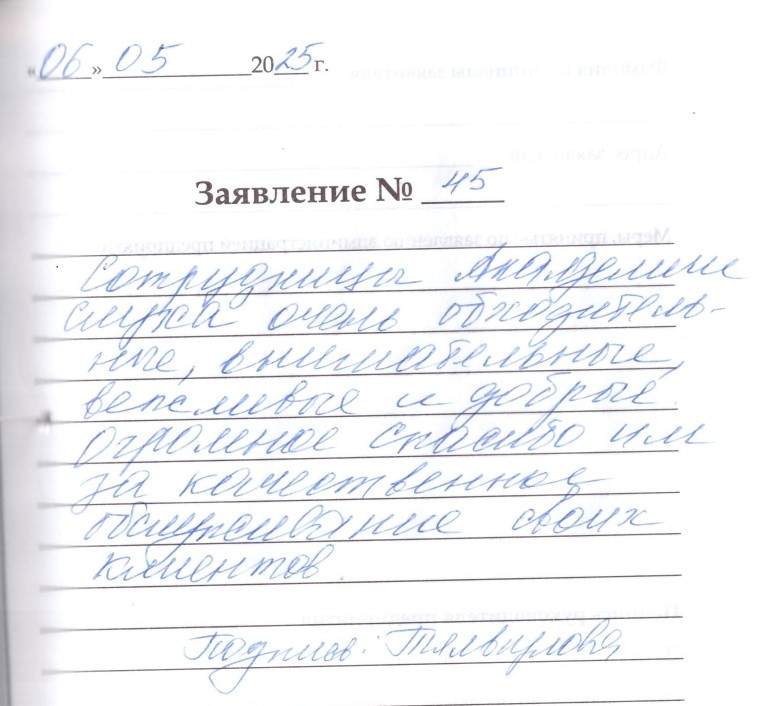 «06» 05 2025 г.
Заявление № 45
Сотрудницы Академии
слуха очень обходитель-
ные, внимательные,
вежливые и добрые.
Огромное спасибо им
за качественное
обслуживание своих
клиентов.
Подпись: